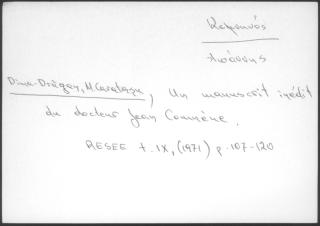 Κομνηνός
Ιωάννης
Dima-Drăgan, M. Caratașu, Un manuscrit inédit
du docteur Jean Comnène.
RESEE t. IX, (1971) p. 107-120